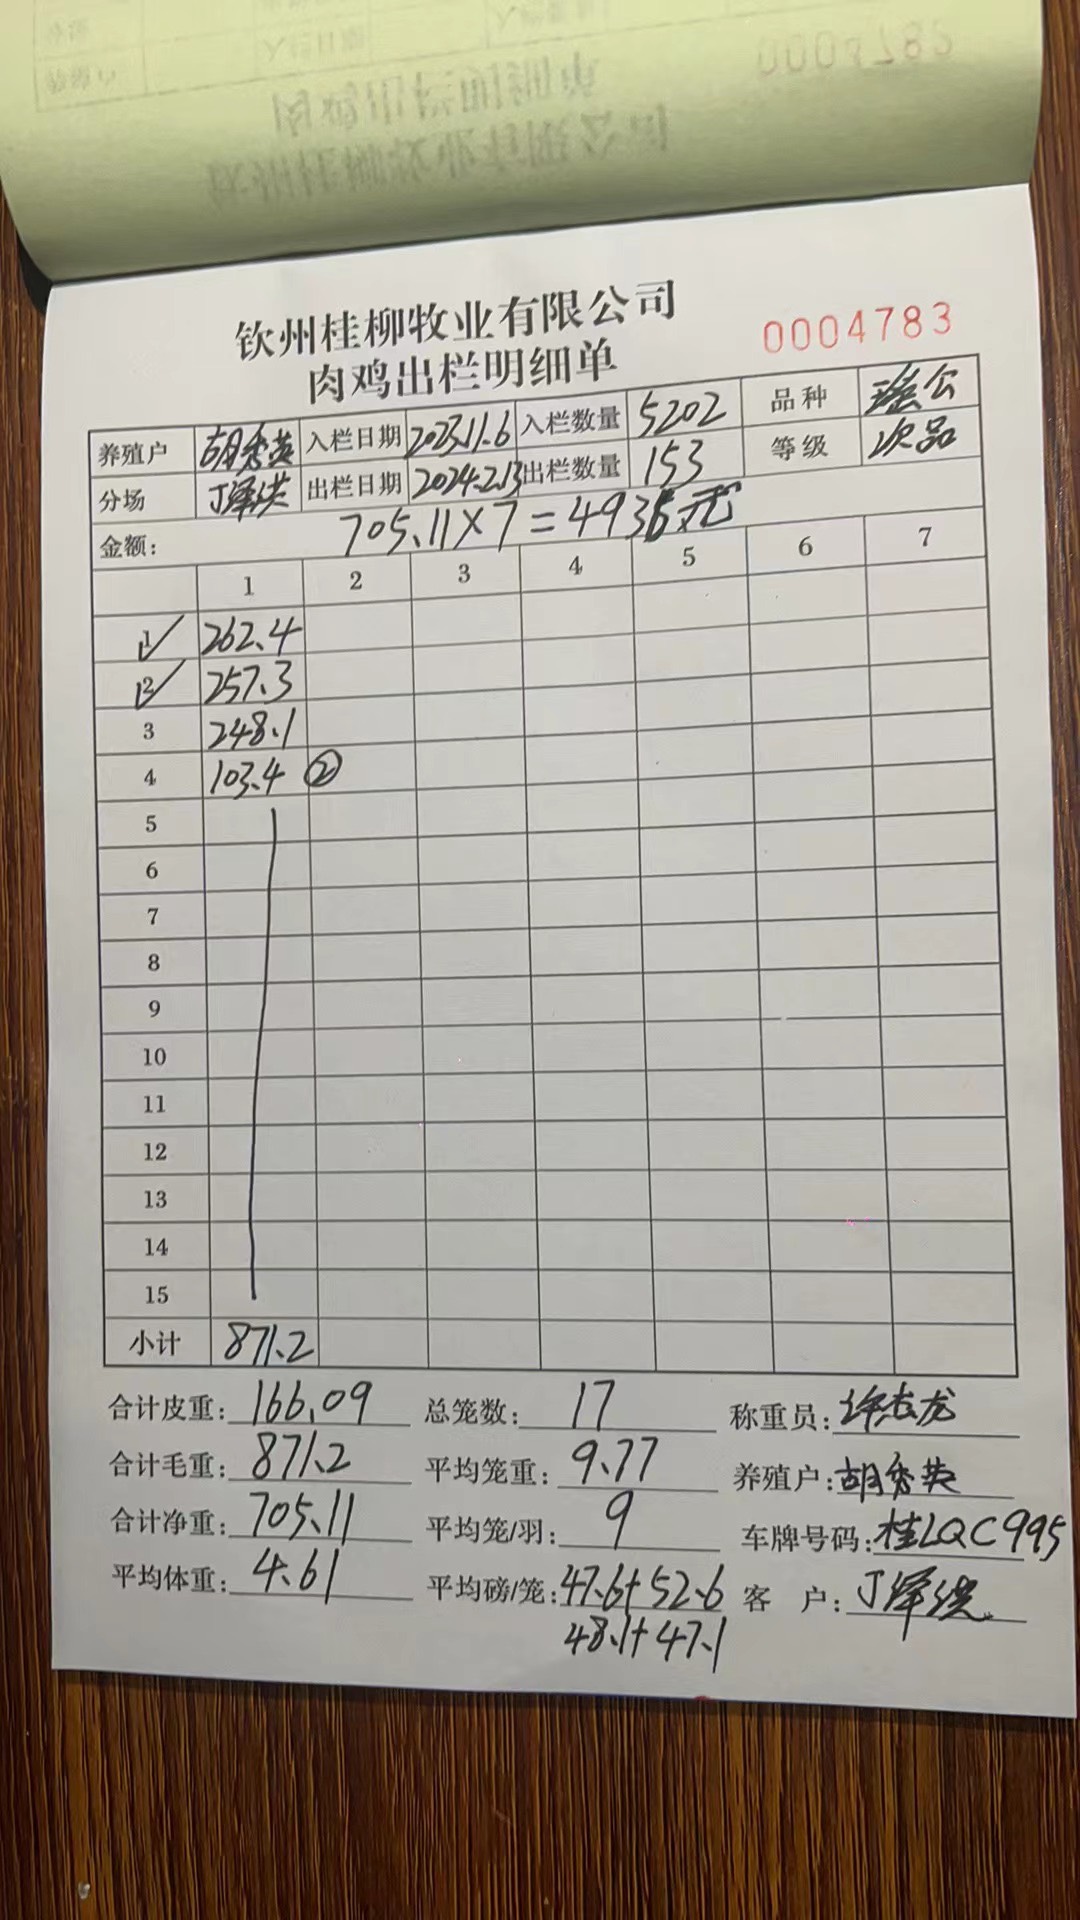 钦州桂柳牧业有限公司
肉鸡出栏明细单
0004783
养殖户 胡秀英 入栏日期 2023.11.6 入栏数量 5202 品种 瑶公
分场 丁泽洪 出栏日期 2024.2.13 出栏数量 153 等级 次品
金额: 705.11×7=4936元
1 2 3 4 5 6 7
1 262.4
2 257.3
3 248.1
4 103.4 ②
5
6
7
8
9
10
11
12
13
14
15
小计 871.2
合计皮重: 166.09 总笼数: 17 称重员: 许志龙
合计毛重: 871.2 平均笼重: 9.77 养殖户: 胡秀英
合计净重: 705.11 平均笼/羽: 9 车牌号码: 桂LQC995
平均体重: 4.61 平均磅/笼: 47.6+52.6 客 户: 丁泽洪
48.1+47.1